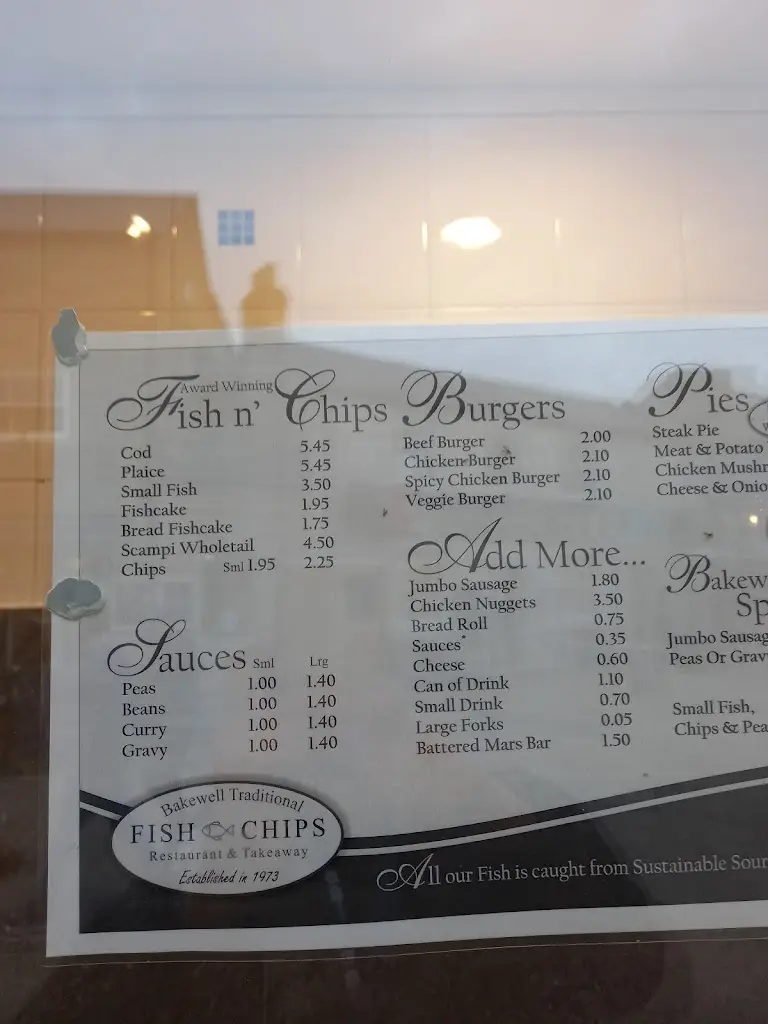 Award Winning
Fish n' Chips
Cod 5.45
Plaice 5.45
Small Fish 3.50
Fishcake 1.95
Bread Fishcake 1.75
Scampi Wholetail 4.50
Chips Sml 1.95 2.25
Sauces Sml Lrg
Peas 1.00 1.40
Beans 1.00 1.40
Curry 1.00 1.40
Gravy 1.00 1.40
Burgers
Beef Burger 2.00
Chicken Burger 2.10
Spicy Chicken Burger 2.10
Veggie Burger 2.10
Add More...
Jumbo Sausage 1.80
Chicken Nuggets 3.50
Bread Roll 0.75
Sauces* 0.35
Cheese 0.60
Can of Drink 1.10
Small Drink 0.70
Large Forks 0.05
Battered Mars Bar 1.50
Pies
Steak Pie
Meat & Potato
Chicken Mushr
Cheese & Onio
Bakew
Sp
Jumbo Sausag
Peas Or Grav
Small Fish,
Chips & Pea
Bakewell Traditional
FISH CHIPS
Restaurant & Takeaway
Established in 1973
All our Fish is caught from Sustainable Sour